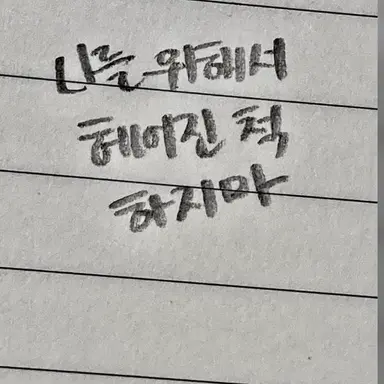 나를 위해서
헤어진 척
하지마